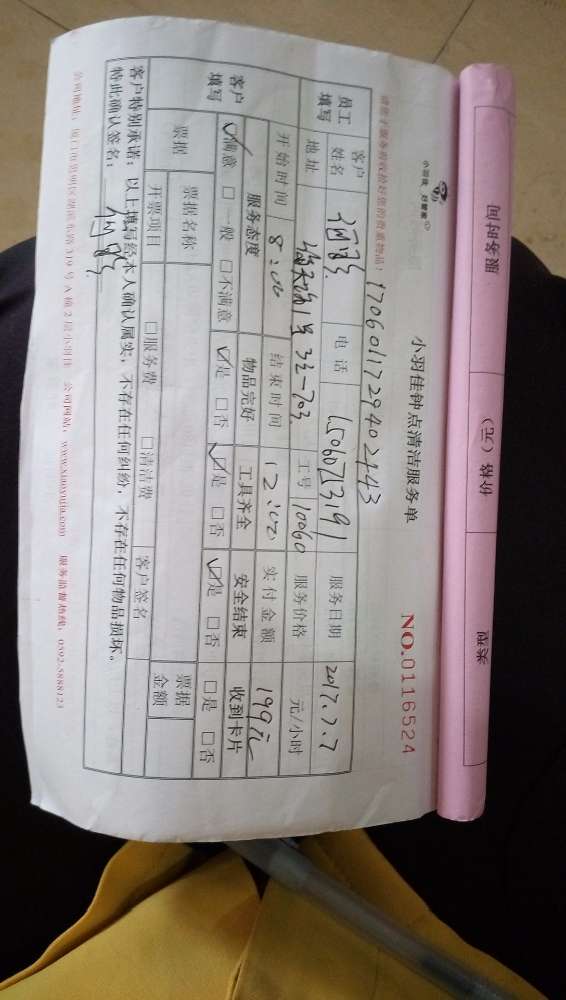 服务时间 价格（元） 录采
小羽佳 好管家
小羽佳钟点清洁服务单
NO.0116524
170601172940 2443
员工填写 客户姓名 电话 服务日期 2017.7.7
地址 1号 33-703 工号 10060 服务价格 元/小时
开始时间 8:00 结束时间 12:00 实付金额 199元
客户填写 服务态度 物品完好 工具齐全 安全结束 收到卡片
☑满意 □一般 □不满意 ☑是 □否 ☑是 □否 ☑是 □否 □是 □否
票据 票据名称 票据金额
开票项目 □服务费 □清洁费 客户签名
客户特别承诺：以上填写经本人确认属实，不存在任何纠纷，不存在任何物品损坏。
特此确认签名：
公司网站：www.xiaoyujia.com 服务监督热线：0592-5888123